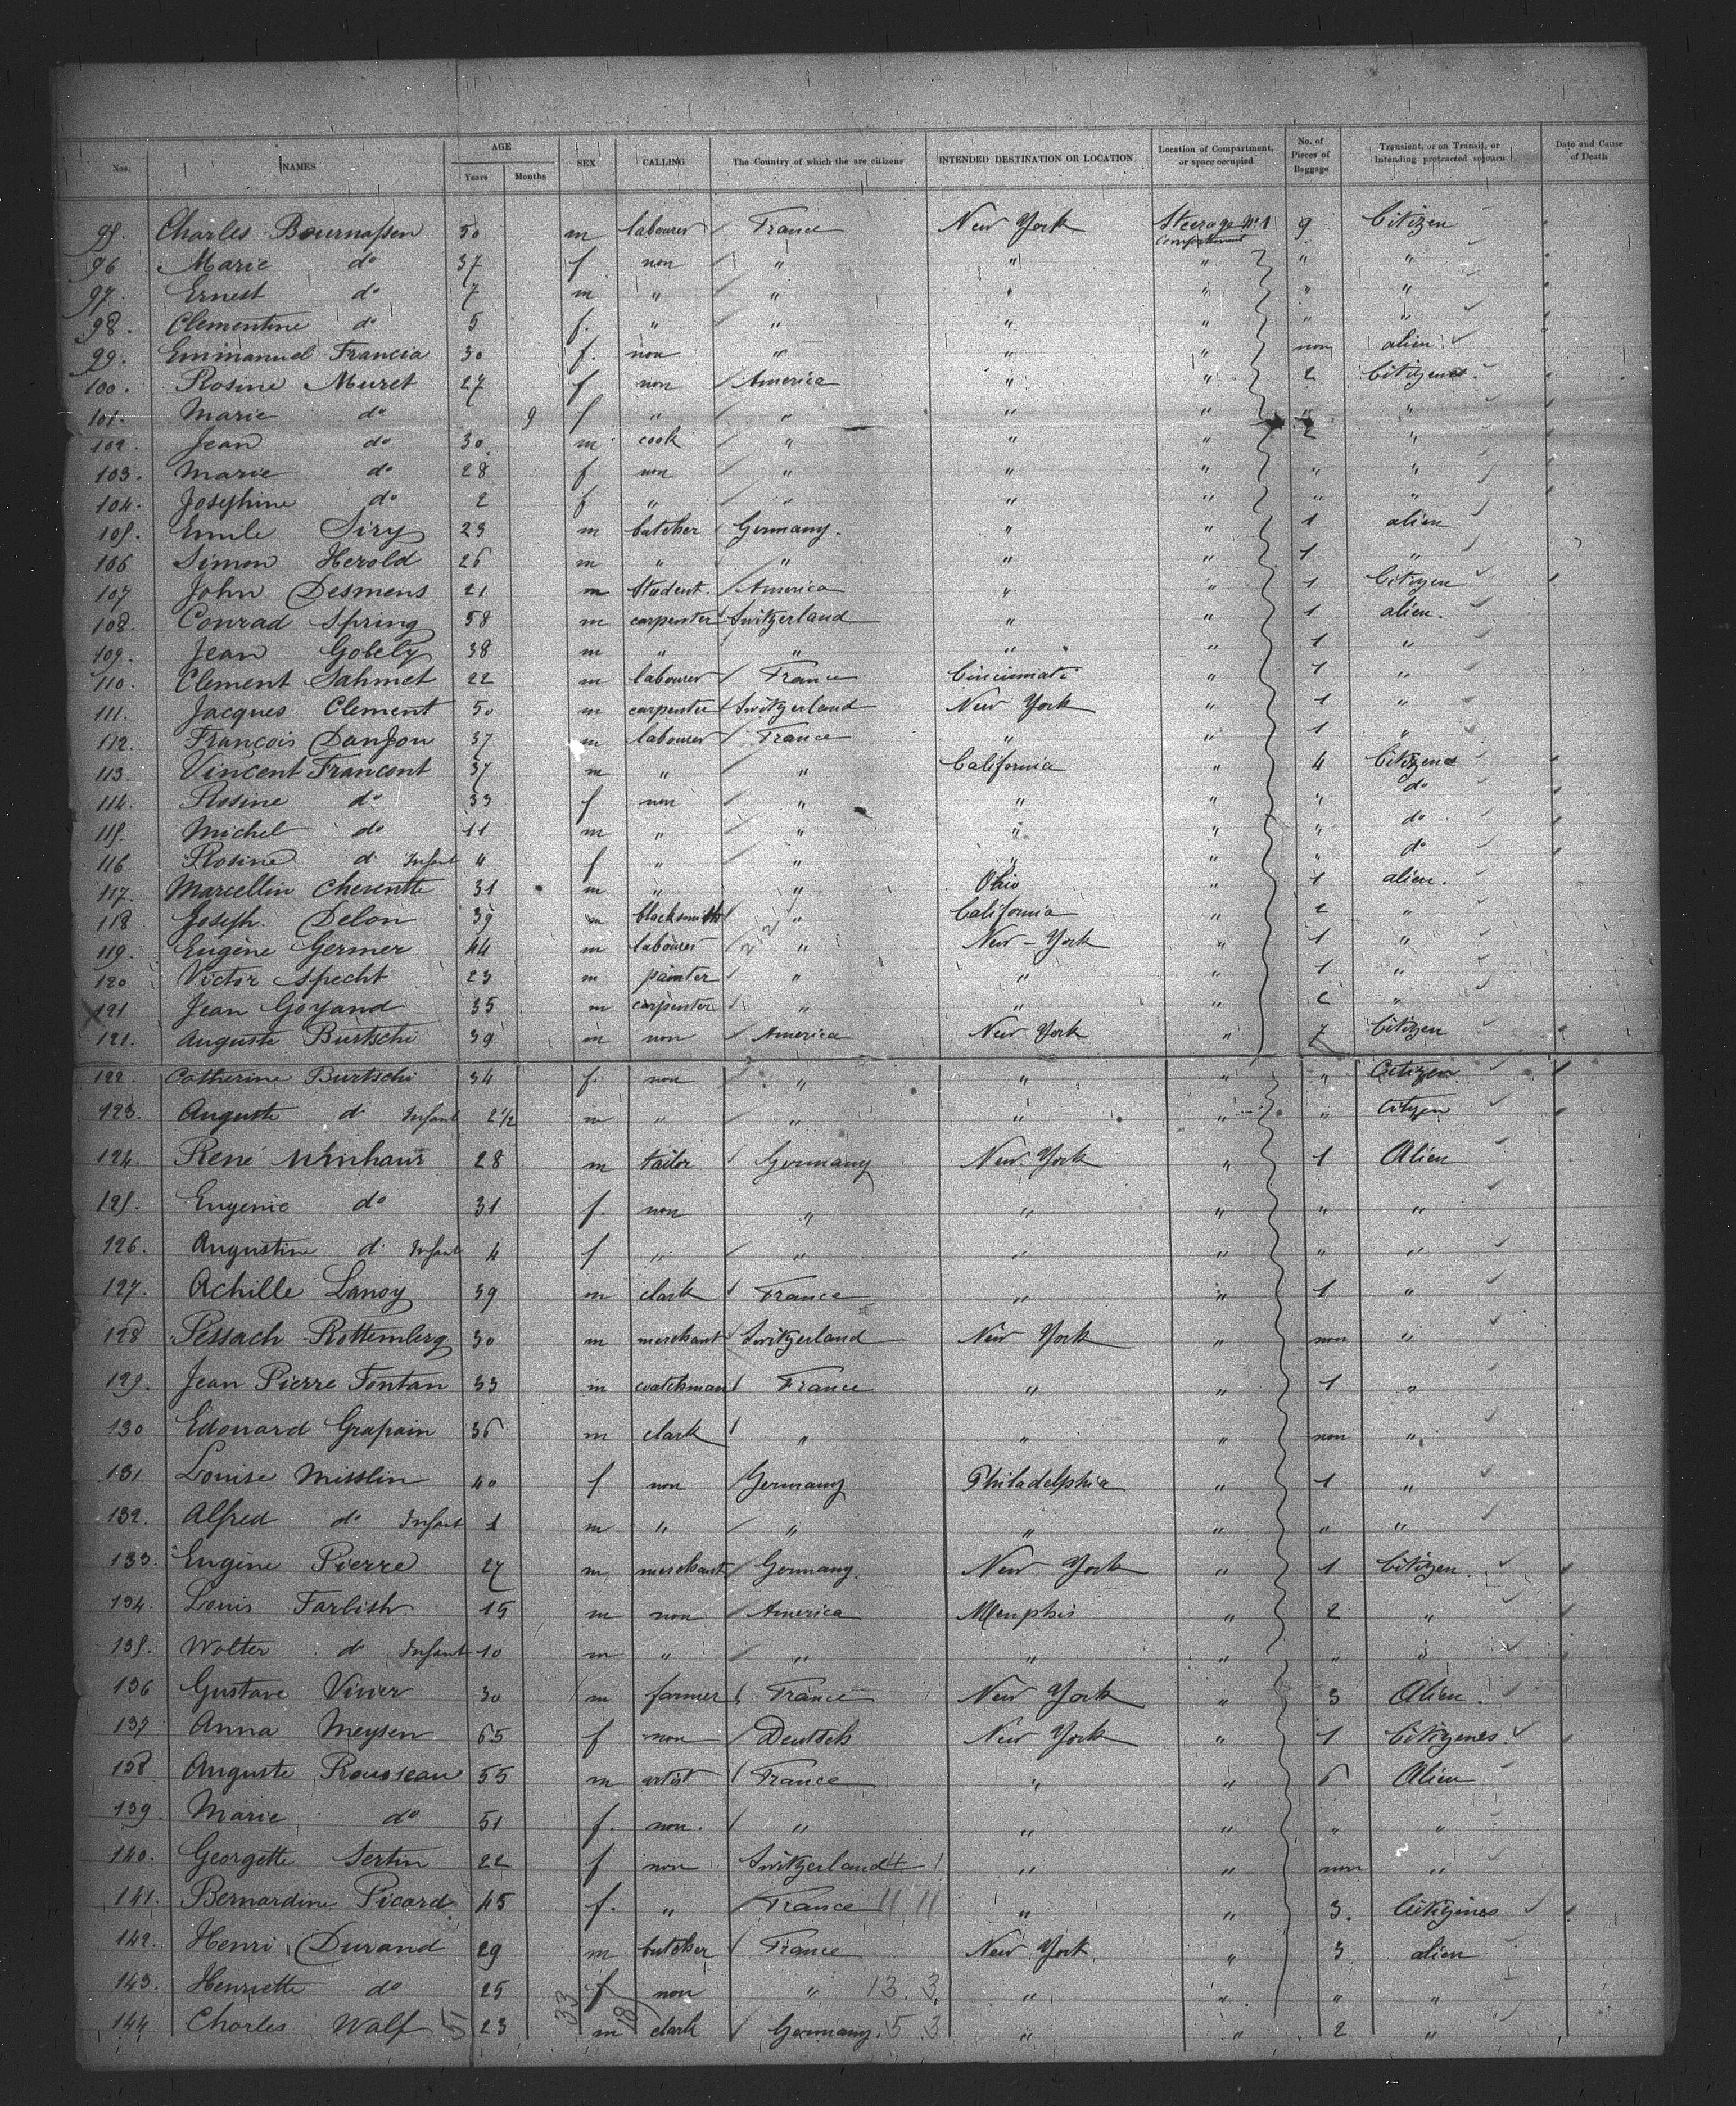 Nos. NAMES AGE Years Months SEX CALLING The Country of which the are citizens INTENDED DESTINATION OR LOCATION Location of Compartment, or space occupied No. of Pieces of Baggage Transient, or on Transit, or Intending protracted sojourn Date and Cause of Death
95. Charles Bournassen 50 m labourer / France New York Steerage No 1 compartment 9 Citizen
96 Marie do 37 f non / " " " " "
97. Ernest do 7 m " / " " " " "
98. Clementine do 5 f. " / " " " " "
99. Emmanuel Francia 30 f. non " " " non alien
100. Rosine Muret 27 f non / America " " 2 Citizens
101. Marie do 9 f " / " " " " "
102. Jean do 30 m cook / " " " 2 "
103. Marie do 28 f non / " " " " "
104. Josephine do 2 f " / " " " " "
105. Emile Siry 23 m butcher / Germany. " " 1 alien
106 Simon Herold 26 m " " " " 1 "
107 John Desmens 21 m Student. / America " " 1 Citizen
108. Conrad Spring 58 m carpenter Switzerland " " 1 alien.
109. Jean Gobely 38 m " " " " 1 "
110. Clement Sahmet 22 m labourer / France Cincinnati " 1 "
111. Jacques Clement 50 m carpenter Switzerland New York " 1 "
112. François Danjou 37 m labourer / France " " 1 "
113. Vincent Francont 37 m " / " California " 4 Citizens
114. Rosine do 33 f non / " " " " do
115. Michel do 11 m " / " " " " do
116 Rosine do Infant 4 f " / " " " " do
117. Marcellin Cherentte 31 m " " Ohio " 1 alien.
118 Joseph. Delon 39 m blacksmith / " California " 2 "
119. Eugène Germer 44 m labourer / " New-York " 1 "
120 Victor Specht 23 m painter / " " " 1 "
121 Jean Goyand 35 m carpenter / " " " 2 "
121. Auguste Burtschi 39 m non / America New York " 7 Citizen
122. Catherine Burtschi 34 f. non / " " " " Citizen
123. Auguste do Infant 2 1/2 m " / " " " " Citizen
124. René 28 m tailor / Germany New York " 1 Alien
125. Eugenie do 31 f. non " " " " "
126. Augustine do Infant 4 f " / " " " " "
127. Achille Lanoy 39 m clark / France " " 1 "
128 Pessach Rottemberg 30 m merchant / Switzerland New York " non "
129. Jean Pierre Fontan 33 m watchman / France " " 1 "
130 Edouard Grapain 36 m clark / " " " non "
131 Louise Misslin 40 f non / Germany Philadelphia " 1 "
132. Alfred do Infant 1 m " / " " " " "
133. Eugène Pierre 27 m merchant / Germany. New York " 1 Citizen.
134. Louis Farbish 15 m non / America Memphis " 2 "
135. Wolter do Infant 10 m " / " " " " "
136 Gustave Vivier 30 m farmer / France New York " 3 Alien.
137 Anna Meysen 65 f non / Deutsch New York " 1 Citizenes.
138 Auguste Rousseau 55 m artist / France " " 6 Alien
139 Marie do 51 f. non. / " " " " "
140. Georgette Sertin 22 f non Switzerland 4 1 " " non "
141. Bernardine Picard 45 f. " / France 11 11 " " 3. Citizenes
142. Henri Durand 29 m butcher / France New York " 3 alien
143. Henriette do 25 f non " 13. 3. " " " "
144 Charles Walf 51 23 33 m 18 clark / Germany. 5 3 " " 2 "